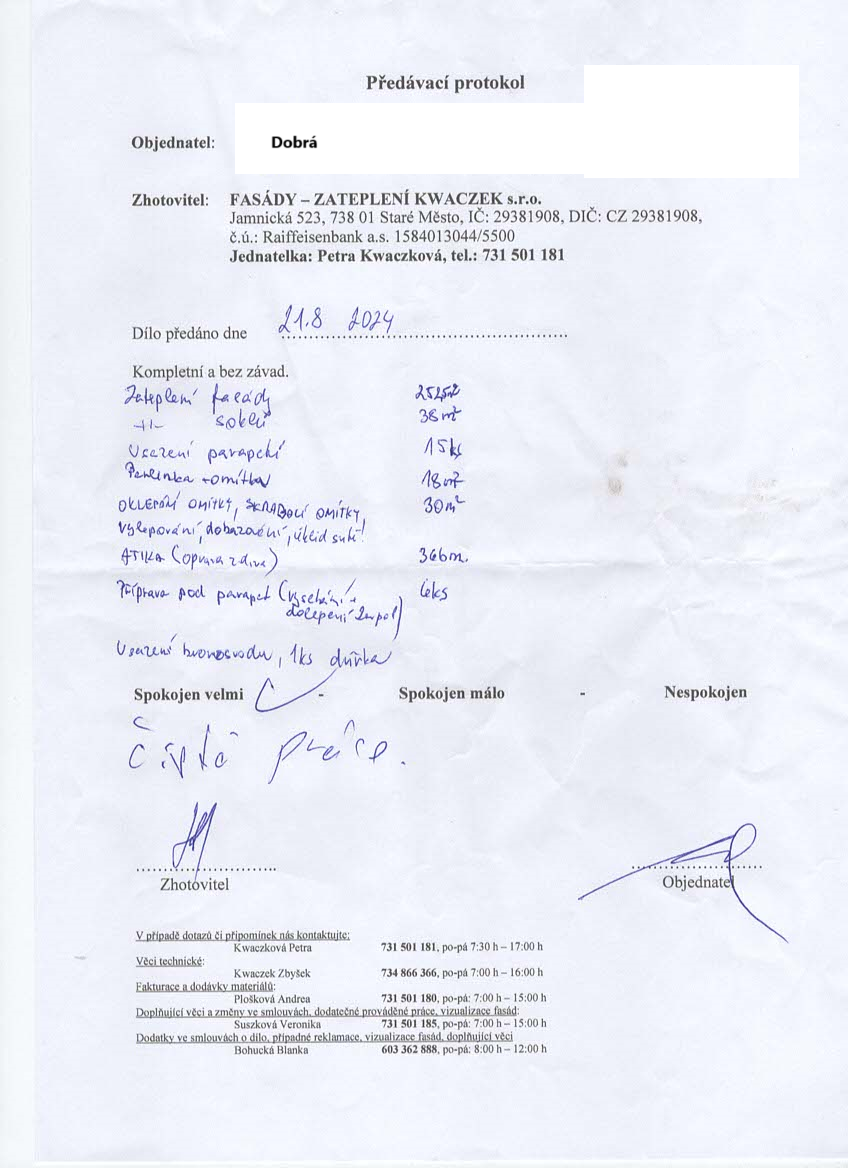 Předávací protokol
Objednatel: Dobrá
Zhotovitel: FASÁDY – ZATEPLENÍ KWACZEK s.r.o.
Jamnická 523, 738 01 Staré Město, IČ: 29381908, DIČ: CZ 29381908,
č.ú.: Raiffeisenbank a.s. 1584013044/5500
Jednatelka: Petra Kwaczková, tel.: 731 501 181
Dílo předáno dne 21.8 2024
Kompletní a bez závad.
Zateplení fasády
-//- soklů 38m²
Usazení parapetů 15ks
Perlinka + omítka 18m²
OKLEPÁNÍ OMÍTKY, ŠKRÁBÁNÍ OMÍTKY 30m²
Vylepování, úklid sutě!
ATIKA (oprava zdiva) 36bm.
Příprava pod parapet (vysekání + 6ks
dolepení
Usazení hromosvodu, 1ks dvířka
Spokojen velmi - Spokojen málo - Nespokojen
Čistá práce.
Zhotovitel Objednatel
V případě dotazů či připomínek nás kontaktujte:
Kwaczková Petra 731 501 181, po-pá 7:30 h – 17:00 h
Věci technické:
Kwaczek Zbyšek 734 866 366, po-pá 7:00 h – 16:00 h
Fakturace a dodávky materiálů:
Plošková Andrea 731 501 180, po-pá: 7:00 h – 15:00 h
Doplňující věci a změny ve smlouvách, dodatečné prováděné práce, vizualizace fasád:
Suszková Veronika 731 501 185, po-pá: 7:00 h – 15:00 h
Dodatky ve smlouvách o dílo, případné reklamace, vizualizace fasád, doplňující věci
Bohucká Blanka 603 362 888, po-pá: 8:00 h – 12:00 h